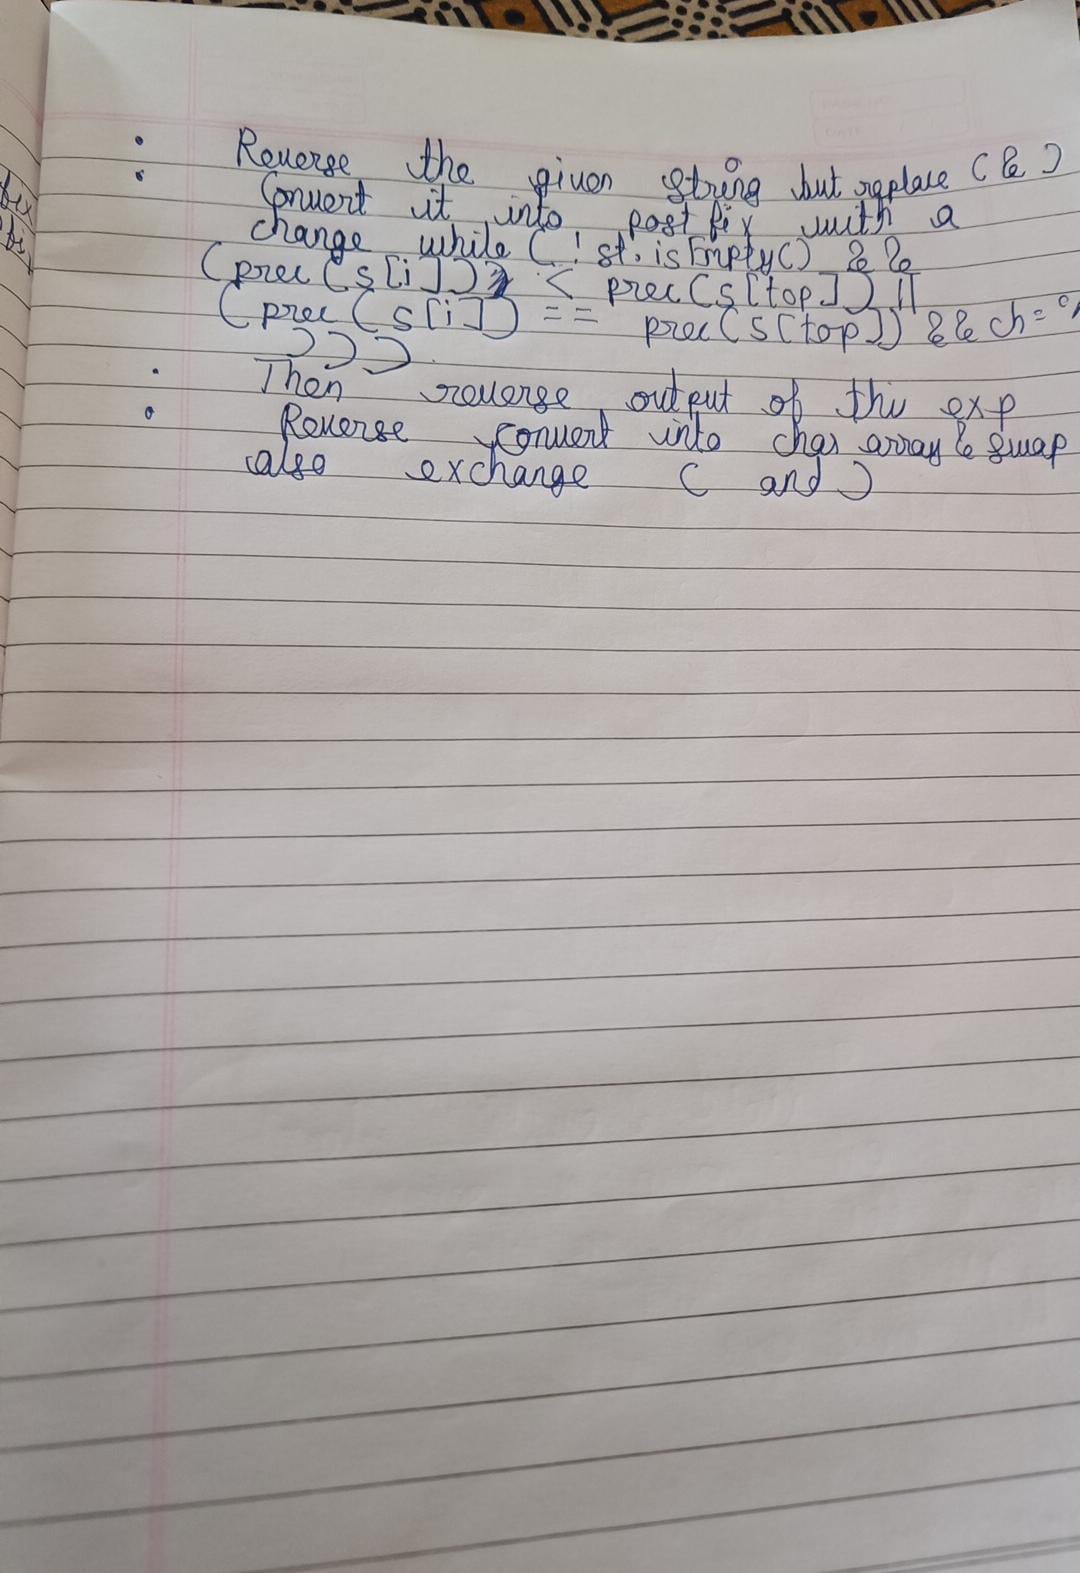 Reverse the given string but replace ( & )
Convert it into post fix with a
change while ( ! st. isEmpty() &&
(prec (s[i]) < prec(s[top]) ||
(prec (s[i]) == prec(s[top]) && ch=
)))
Then reverse output of this exp
Reverse convert into char array & swap
also exchange ( and )